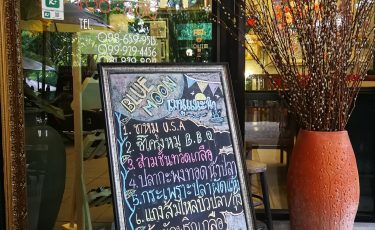 TEL
098-659-9515
099-919-4456
BLUE
MOON
เมนูแนะนำ
1. ขาหมู U.S.A
2. ซี่โครงหมู B.B.Q
3. สามชั้นทอดเกลือ
4. ปลากะพงทอดน้ำปลา
5. กระเพาะปลาผัดแห้ง
6. แกงส้มไหลบัวปลา/กุ้ง